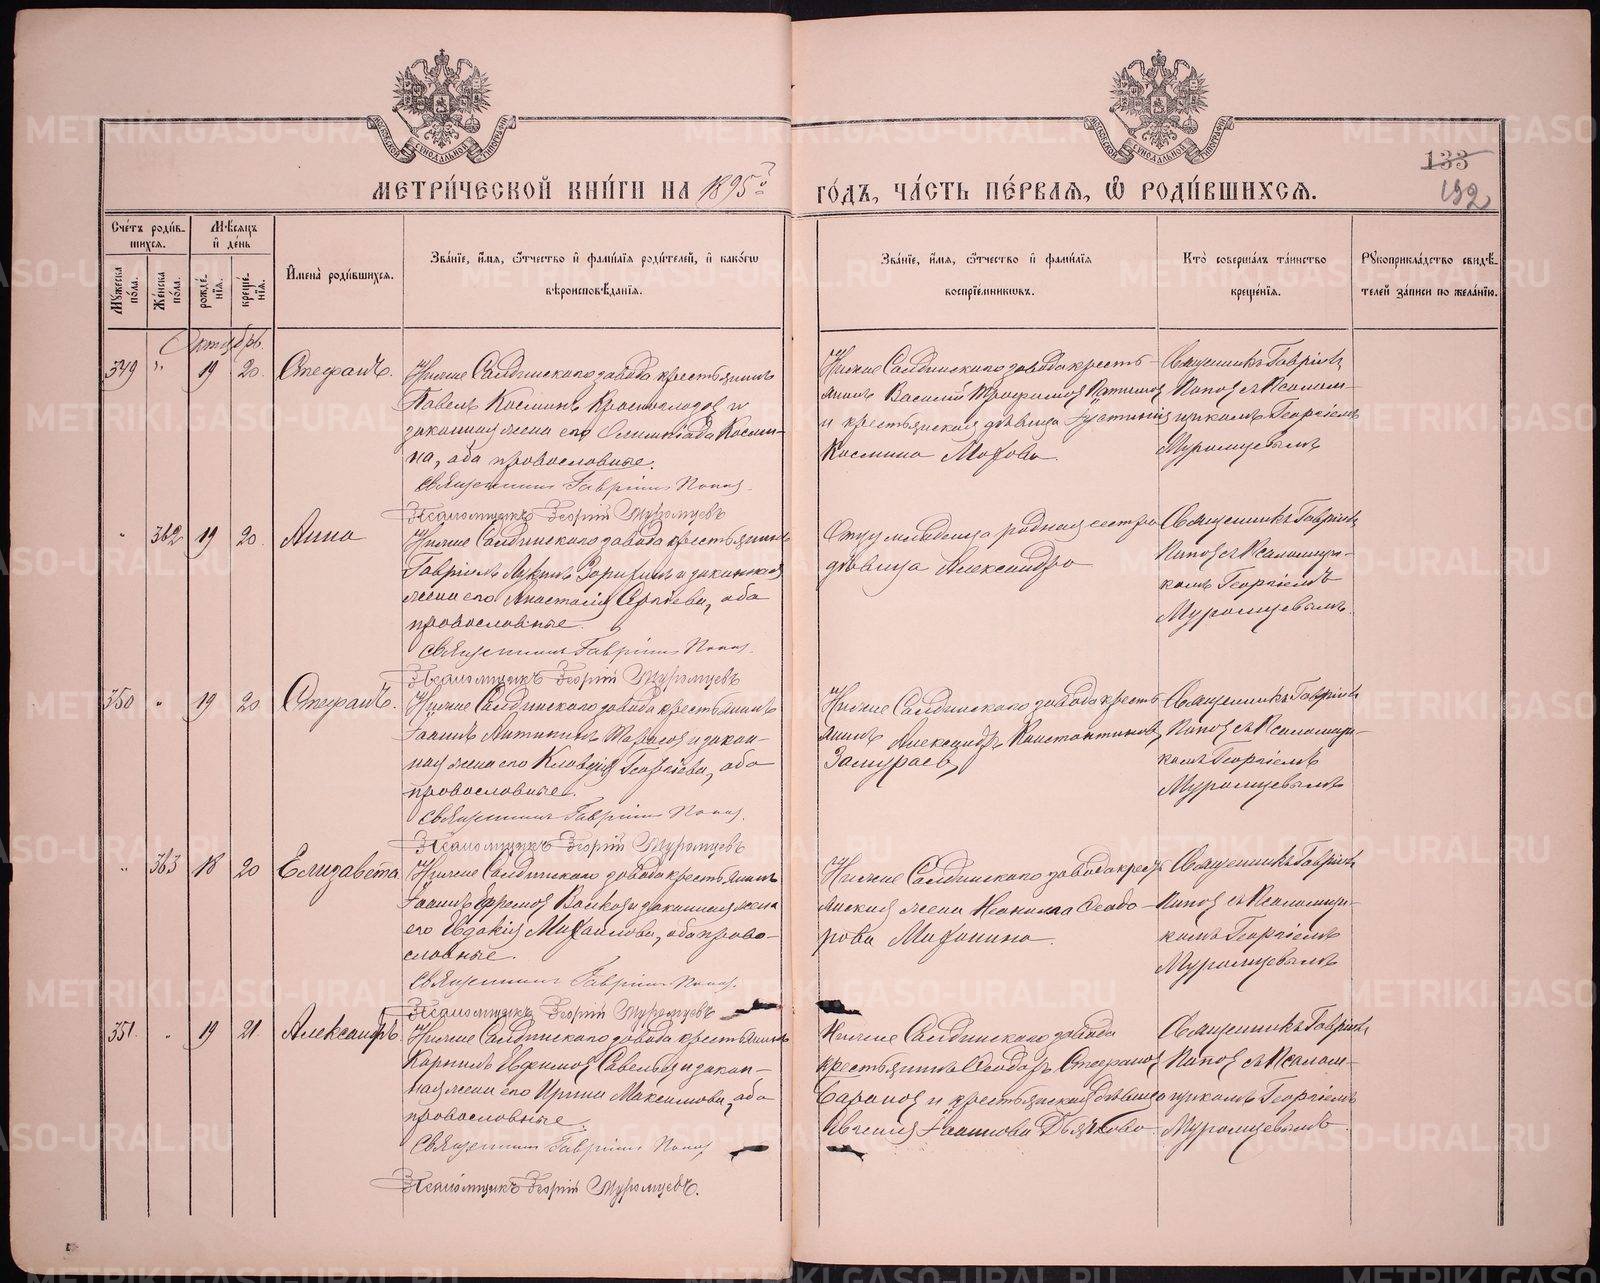 МЕТРИ́ЧЕСКОЙ КНИ́ГИ НА 1895й ГО́ДЪ, ЧА́СТЬ ПЕ́РВАЯ, Ѽ РОДИ́ВШИХСЯ.
133
132
Сче́тъ роди́в-
шихся.
Мѣ́сяцъ
и де́нь
Мꙋжеска по́ла.
Же́нска по́ла.
рожде́-
нїя.
креще́-
нїя.
Имена̀ роди́вшихся.
Зва́нїе, и́мя, ѻ҆́тчество и҆ фами́лїя роди́телей, и҆ како́гѡ
вѣроисповѣ́данїя.
Зва́нїе, и́мя, ѻ҆́тчество и҆ фами́лїя
воспрїе́мникѡвъ.
Кто̀ соверша́лъ та́инство
креще́нїя.
Рꙋкоприкла́дство свидѣ́-
телей за́писи по жела́нїю.
Октябрь.
349 " 19 20. Стефанъ.
Нижне Салдинскаго завода крестьянинъ
Павелъ Косминъ и
законная жена его Олимпіада Косми-
на, оба православные.
Священникъ Гавріилъ Поповъ.
Псаломщикъ Георгій Муромцевъ
Нижне Салдинскаго завода кресть-
янинъ Василій Трофимовъ
и крестьянская дѣвица Іустинія
Космина Махова.
Священникъ Гавріилъ
Поповъ съ Псалом-
щикомъ Георгіемъ
Муромцевымъ
" 362 19 20. Анна
Нижне Салдинскаго завода крестьянинъ
Гавріилъ и законная
жена его Анастасія Сергіева, оба
православные.
Священникъ Гавріилъ Поповъ.
Псаломщикъ Георгій Муромцевъ
Отцу младенца родная сестра
дѣвица Александра
Священникъ Гавріилъ
Поповъ съ Псаломщи-
комъ Георгіемъ
Муромцевымъ.
350 " 19 20 Стефанъ.
Нижне Салдинскаго завода крестьянинъ
Іоаннъ Антипинъ Тарасовъ и закон-
ная жена его Клавдія Георгіева, оба
православные.
Священникъ Гавріилъ Поповъ.
Псаломщикъ Георгій Муромцевъ
Нижне Салдинскаго завода кресть-
янинъ Александръ Константиновъ
Замураевъ
Священникъ Гавріилъ
Поповъ съ Псаломщи-
комъ Георгіемъ
Муромцевымъ
" 363 18 20 Елизавета
Нижне Салдинскаго завода крестьянинъ
Іоаннъ Ефремовъ Волковъ и законная жена
его Евдокія Михаилова, оба право-
славные.
Священникъ Гавріилъ Поповъ.
Псаломщикъ Георгій Муромцевъ
Нижне Салдинскаго завода кресть-
янская жена Неонилла Ѳеодо-
рова Махонина.
Священникъ Гавріилъ
Поповъ съ Псаломщи-
комъ Георгіемъ
Муромцевымъ
351. " 19 21. Александръ.
Нижне Салдинскаго завода крестьянинъ
Карпилъ Евфимовъ Савельевъ и закон-
ная жена его Ирина Максимова, оба
православные.
Священникъ Гавріилъ Поповъ
Псаломщикъ Георгій Муромцевъ.
Нижне Салдинскаго завода
крестьянинъ Ѳеодоръ Стефановъ
и крестьянская дѣвица
Евгенія Іоаннова Дьячкова.
Священникъ Гавріилъ
Поповъ съ Псалом-
щикомъ Георгіемъ
Муромцевымъ.